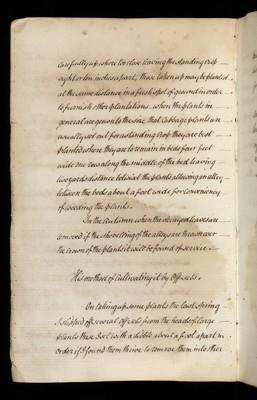 carefully up where too close leaving the standing crop
eight or ten inches apart, those taken up may be planted
at the same distance in a fresh spot of ground in order
to furnish other plantations. when the plants in
general are grown to the size that cabbage plants are
usually set out for a standing crop they are best
planted where they are to remain in beds four feet
wide one row along the middle of the bed leaving
two yards distance betwixt the plants allowing an alley
between the beds about a foot wide for conveniency
of weeding the plants.
In the Autumn when the decayed leaves are
removed if the shovelling of the alleys are thrown over
the crown of the plants it will be found of service.
His method of Cultivating it by Off sets.
On taking up some plants the last Spring
I slipped off several off sets from the heads of large
plants these I set with a dibble about a foot apart in
order if I found them thrive to remove them into other